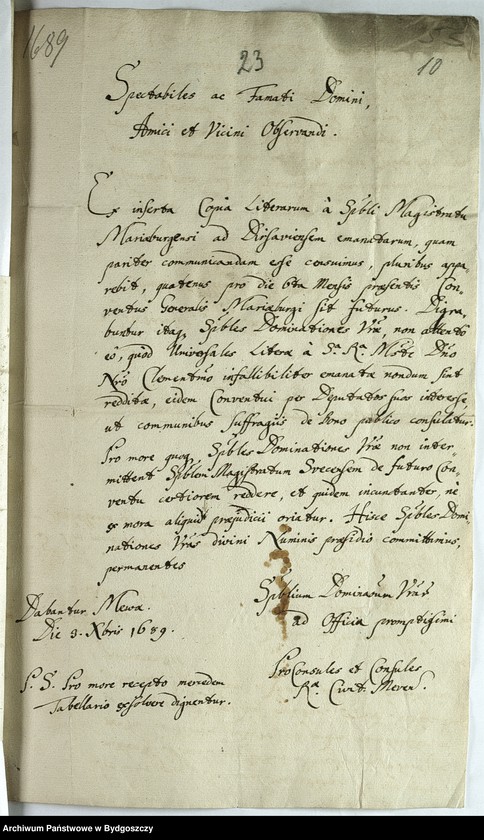 1689
23
10
Spectabiles ac Famati Domini,
Amici et Vicini Observandi.
Ex inserta Copia Literarum à Spbli Magistratu
Mariæburgensi ad Dirsaviensem emanatarum, quam
pariter communicandam esse censuimus, pluribus appa,
rebit, quatenus pro die 6ta Mensis præsentis Con,
ventus Generalis Mariæburgi sit futurus. Digna,
buntur itaq, Spbles Dominationes Vræ, non attento
eô, quòd Universales Literæ à Sa. Ra. Mste Dno
Nro Clementmo infallibiliter emanatæ nondum sint
redditæ, eidem Conventui per Deputatos suos interesse
ut communibus suffragiis de bono publico consulatur.
Pro more quoq, Spbles Dominationes Vræ non inter,
mittent Spblem Magistratum Svecensem de futuro Con,
ventu certiorem reddere, et quidem incunctanter, nè
ex mora aliquid præjudicii oriatur. Hisce Spbles Domi,
nationes Vras divini Numinis præsidio committimus,
permanentes
Spblium Dominaoum Vrar
ad Officia promptissimi
Dabantur Mewæ.
Die 3. Xbris 1689.
ProConsules et Consules
Ræ Civit: Mewen.
P. S. Pro more recepto mercedem
Tabellario exsolvere dignentur.
Archiwum Państwowe w Bydgoszczy